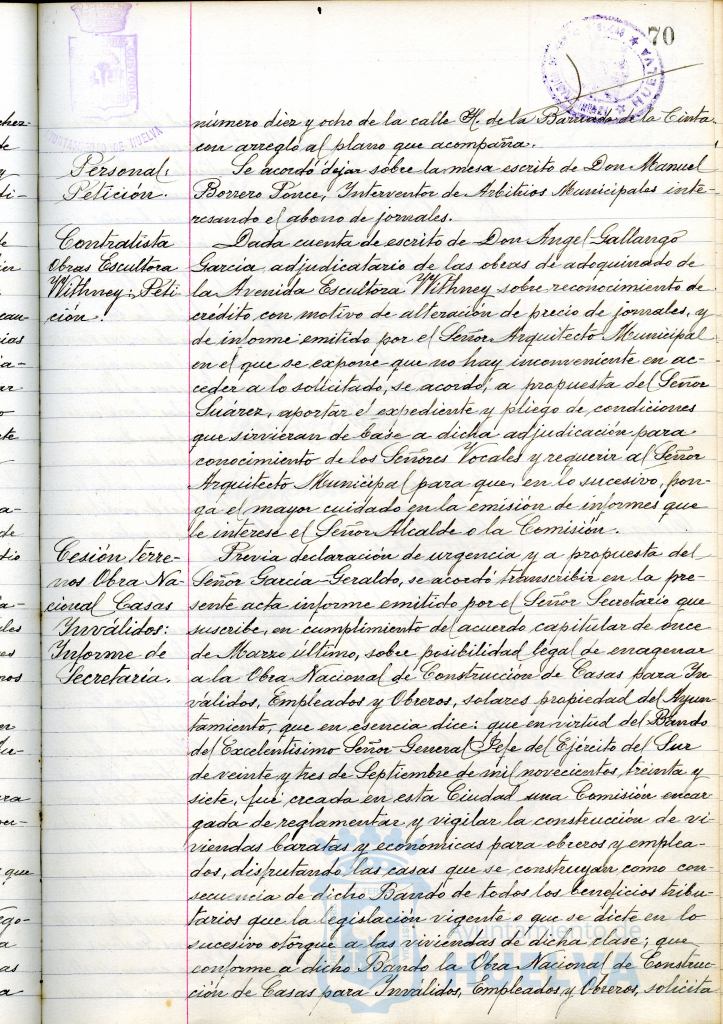 70
AYUNTAMIENTO DE HUELVA
HUELVA
número diez y ocho de la calle H. de la Barriada de la Cinta
con arreglo al plano que acompaña.
Personal:
Petición.
Se acordó dejar sobre la mesa escrito de Don Manuel
Borrero Ponce, Interventor de Arbitrios Municipales inte-
resando el abono de jornales.
Contratista
Obras Escultora
Withney: Peti-
ción.
Dada cuenta de escrito de Don Angel Gallango
García, adjudicatario de las obras de adoquinado de
la Avenida Escultora Withney sobre reconocimiento de
credito, con motivo de alteración de precio de jornales, y
de informe emitido por el Señor Arquitecto Municipal
en el que se expone que no hay inconveniente en ac-
ceder a lo solicitado, se acordó, a propuesta del Señor
Suárez, aportar el expediente y pliego de condiciones
que sirvieran de base a dicha adjudicación para
conocimiento de los Señores Vocales y requerir al Señor
Arquitecto Municipal para que, en lo sucesivo, pon-
ga el mayor cuidado en la emisión de informes que
le interese el Señor Alcalde o la Comisión.
Cesión terre-
nos Obra Na-
cional Casas
Inválidos:
Informe de
Secretaría.
Previa declaración de urgencia y a propuesta del
Señor García-Geraldo, se acordó transcribir en la pre-
sente acta informe emitido por el Señor Secretario que
suscribe, en cumplimiento de acuerdo capitular de once
de Marzo último, sobre posibilidad legal de enagenar
a la Obra Nacional de Construcción de Casas para In-
válidos, Empleados y Obreros, solares propiedad del Ayun-
tamiento, que en esencia dice: que en virtud del Bando
del Excelentísimo Señor General Jefe del Ejército del Sur
de veinte y tres de Septiembre de mil novecientos treinta y
siete, fué creada en esta Ciudad una Comisión encar-
gada de reglamentar y vigilar la construcción de vi-
viendas baratas y económicas para obreros y emplea-
dos, disfrutando las casas que se construyan como con-
secuencia de dicho Bando de todos los beneficios tribu-
tarios que la legislación vigente o que se dicte en lo
sucesivo otorgue a las viviendas de dicha clase; que
conforme a dicho Bando la Obra Nacional de Construc-
ción de Casas para Inválidos, Empleados y Obreros, solicita
Ayuntamiento de
HUELVA